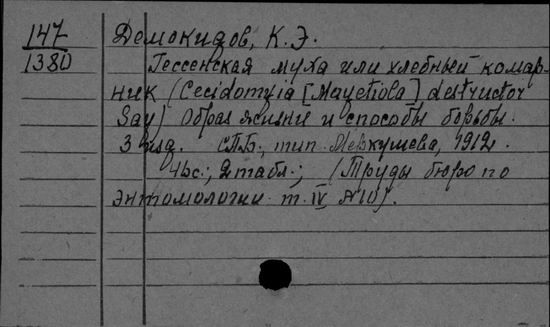 147 Демокидов, К. Э.
1380 Гессенская муха или хлебный комар-
ник (Cecidomyia [Mayetiola] destructor
Say) Образ жизни и способы борьбы.
3 изд. СПБ., тип. Меркушева, 1912.
44с.; 2 табл.; (Труды бюро по
энтомологии т. IV №10).